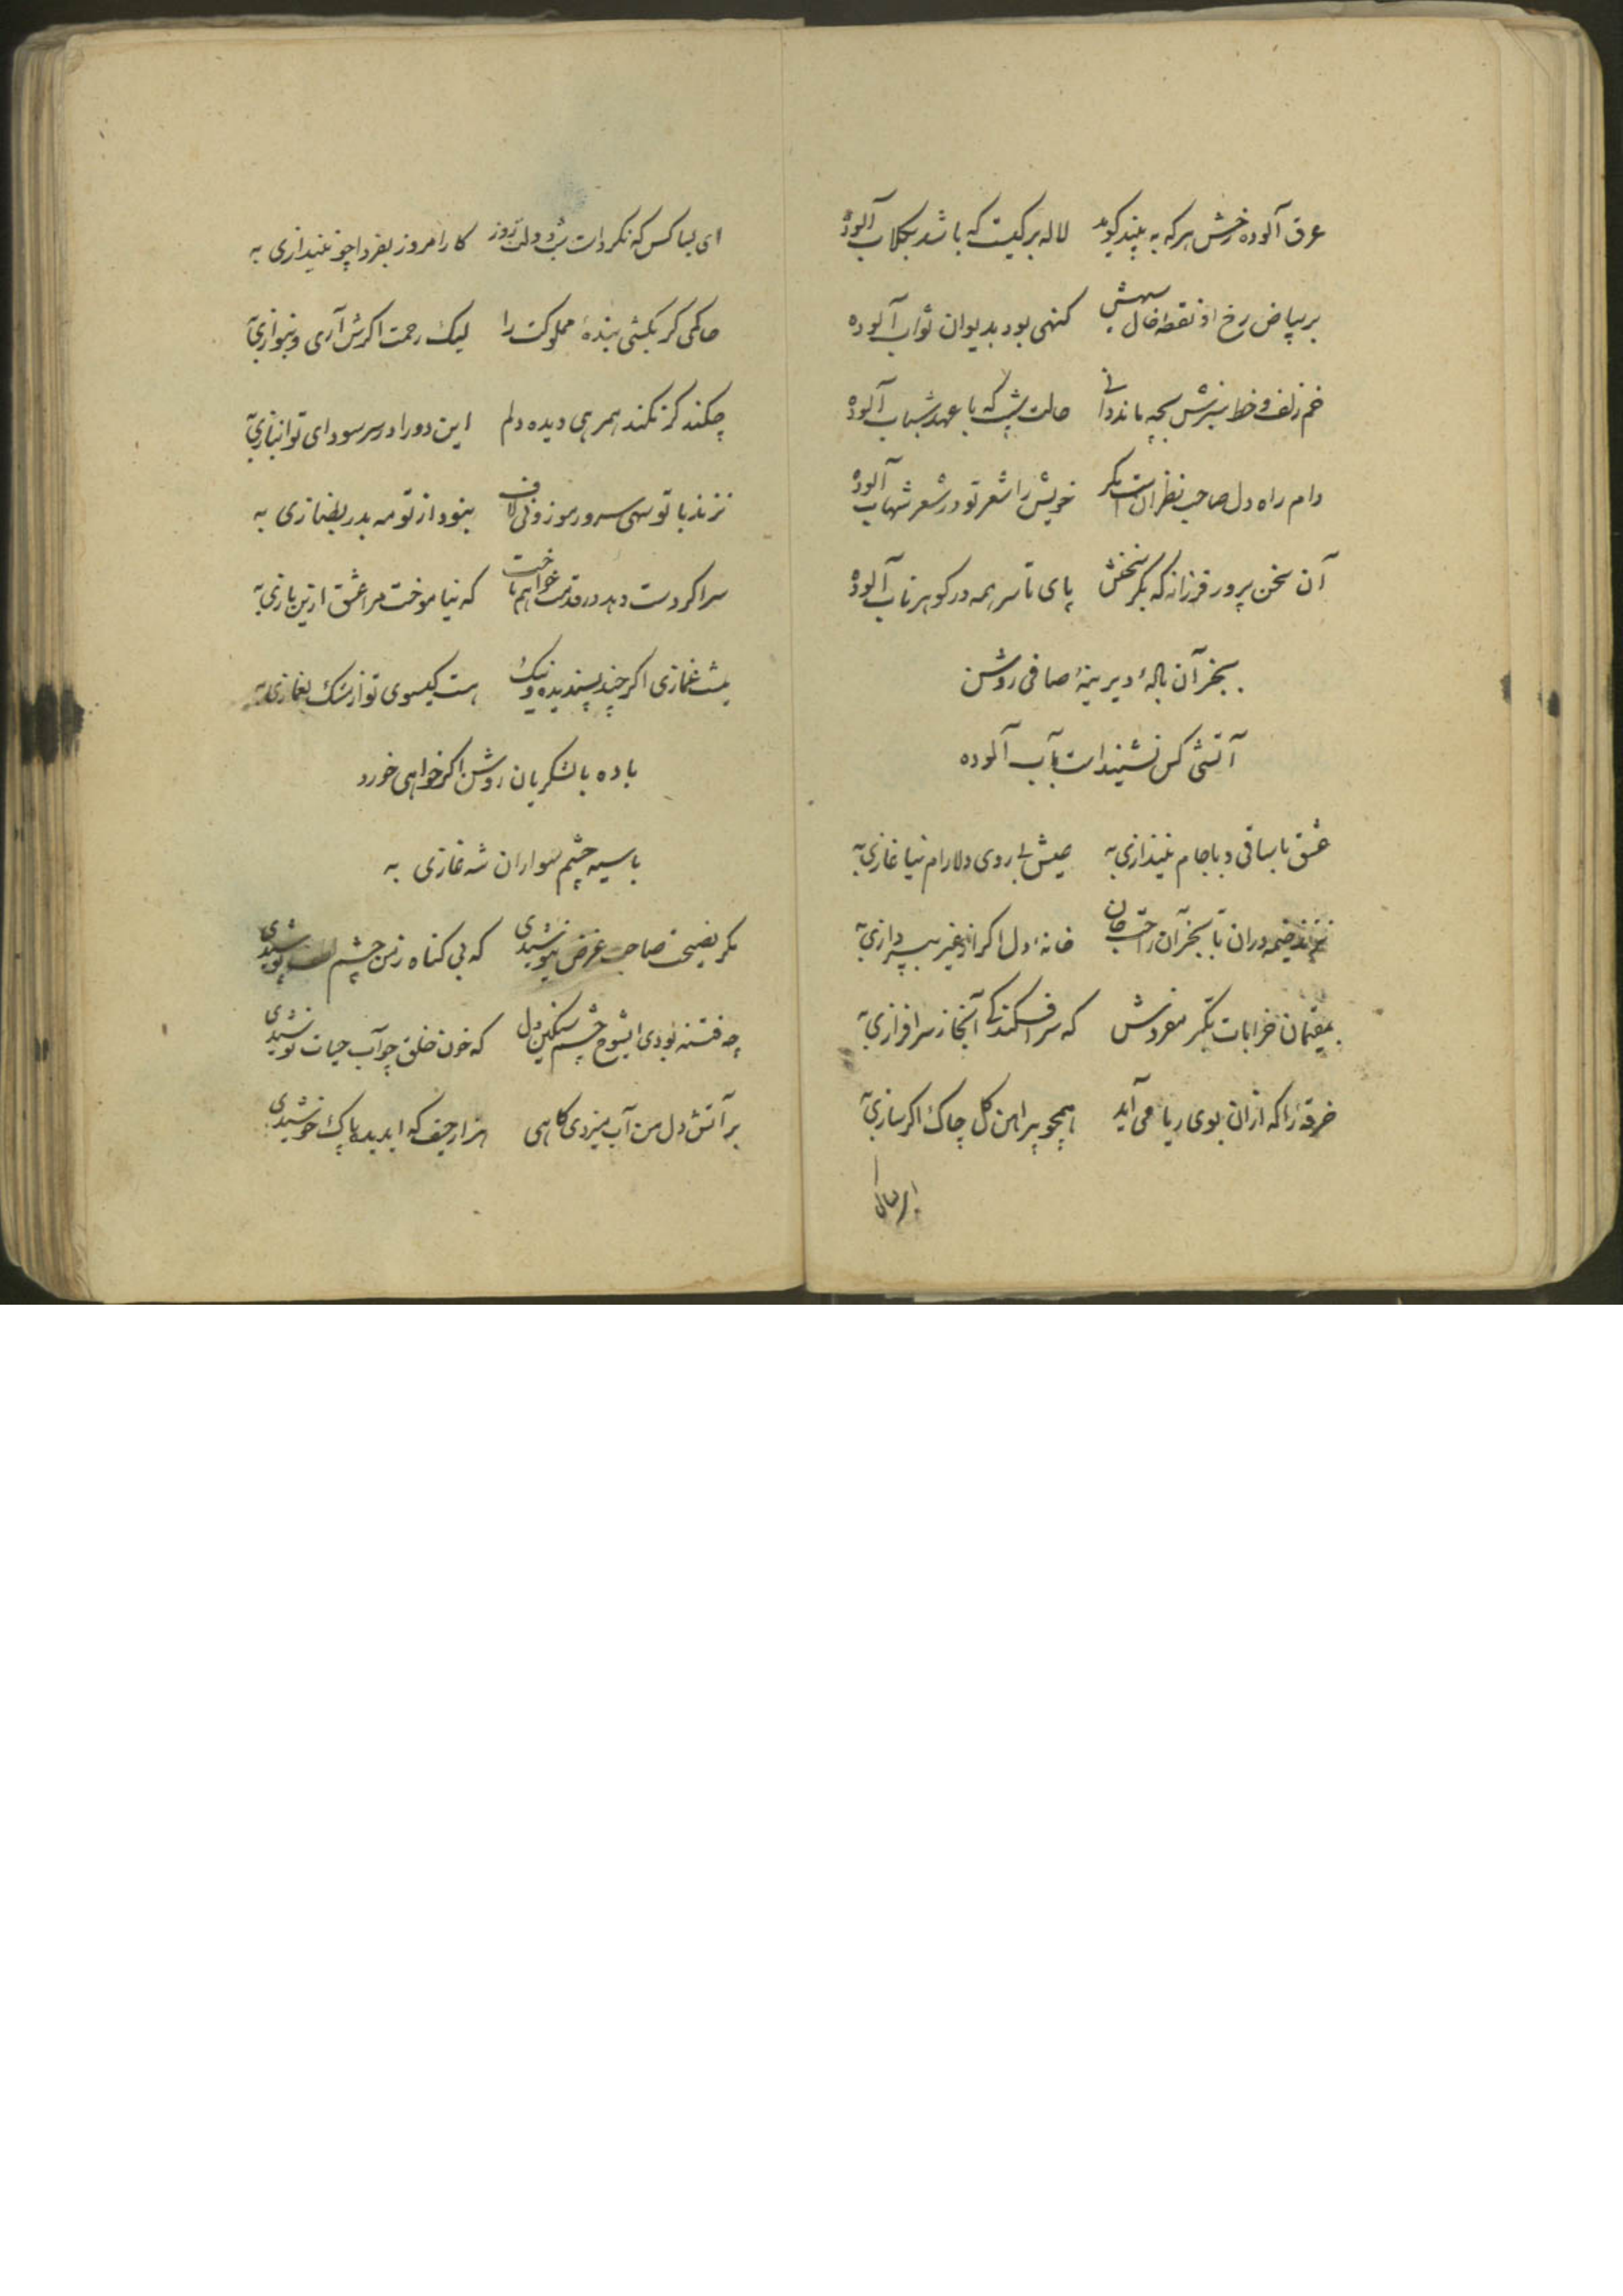 عرق آلوده رخش هر که به بیند گوید لاله برگیست که باشد بگلاب آلوده
بر بیاض رخ او نقطه خال سیهش گنهی بود بدیوان ثواب آلوده
خم زلف و خط سبزش بچه ماند دانی حالت شیب که با عهد شباب آلوده
دام راه دل صاحب نظرانست مگر خویش را شعر تو در شعر شهاب آلوده
آن سخن پرور فرزانه که بکر سخنش پای تا سر همه در گوهر ناب آلوده
بخر آن باله دیرینهٔ صافی روشن
آتشی کس نشنیداست بآب آلوده
عشق با ساقی و با جام بیندازی به عیش بی روی دلارام نیاغازی به
نزند خیمه در آن تا بخر آن راحت جان خانهٔ دل اگر از غیر بپردازی به
بمقیمان خرابات تکبر مفروش که سرافکندگی آنجا ز سرافرازی به
خرقه را که ازان بوی ریا می آید همچو پیراهن گل چاک اگر سازی به
ای بسا کس که نکرد است شب و دولت روز کار امروز بفردا چو نیندازی به
حاکمی گر بکشی بندهٔ مملوکت را لیک رحمت اگرش آری و بنوازی به
چکند گر نکند همرهی دیده دلم این دو را در سر سودای تو انبازی به
نزند با تو سهی سرو ز موزونی لاف بنود از تو مه بدر بطنازی به
سر اگر دست دهد در قدمت خواهم باخت که نیاموخت مرا عشق ازین بازی به
مشک غمازی اگر چند پسندیده و نیک هست گیسوی تو از مشک بغمازی به
باده با لشکریان روشن اگر خواهی خورد
با سیه چشم سواران شه غازی به
مگر نصیحت صاحب غرض نیوشیدی که بی گناه ز من چشم لطف پوشیدی
چه فتنه بودی ایشوخ چشم سنگین دل که خون خلق چو آب حیات نوشیدی
بر آتش دل من آب میزدی گاهی هزار حیف که ایدیده پاک خوشیدی